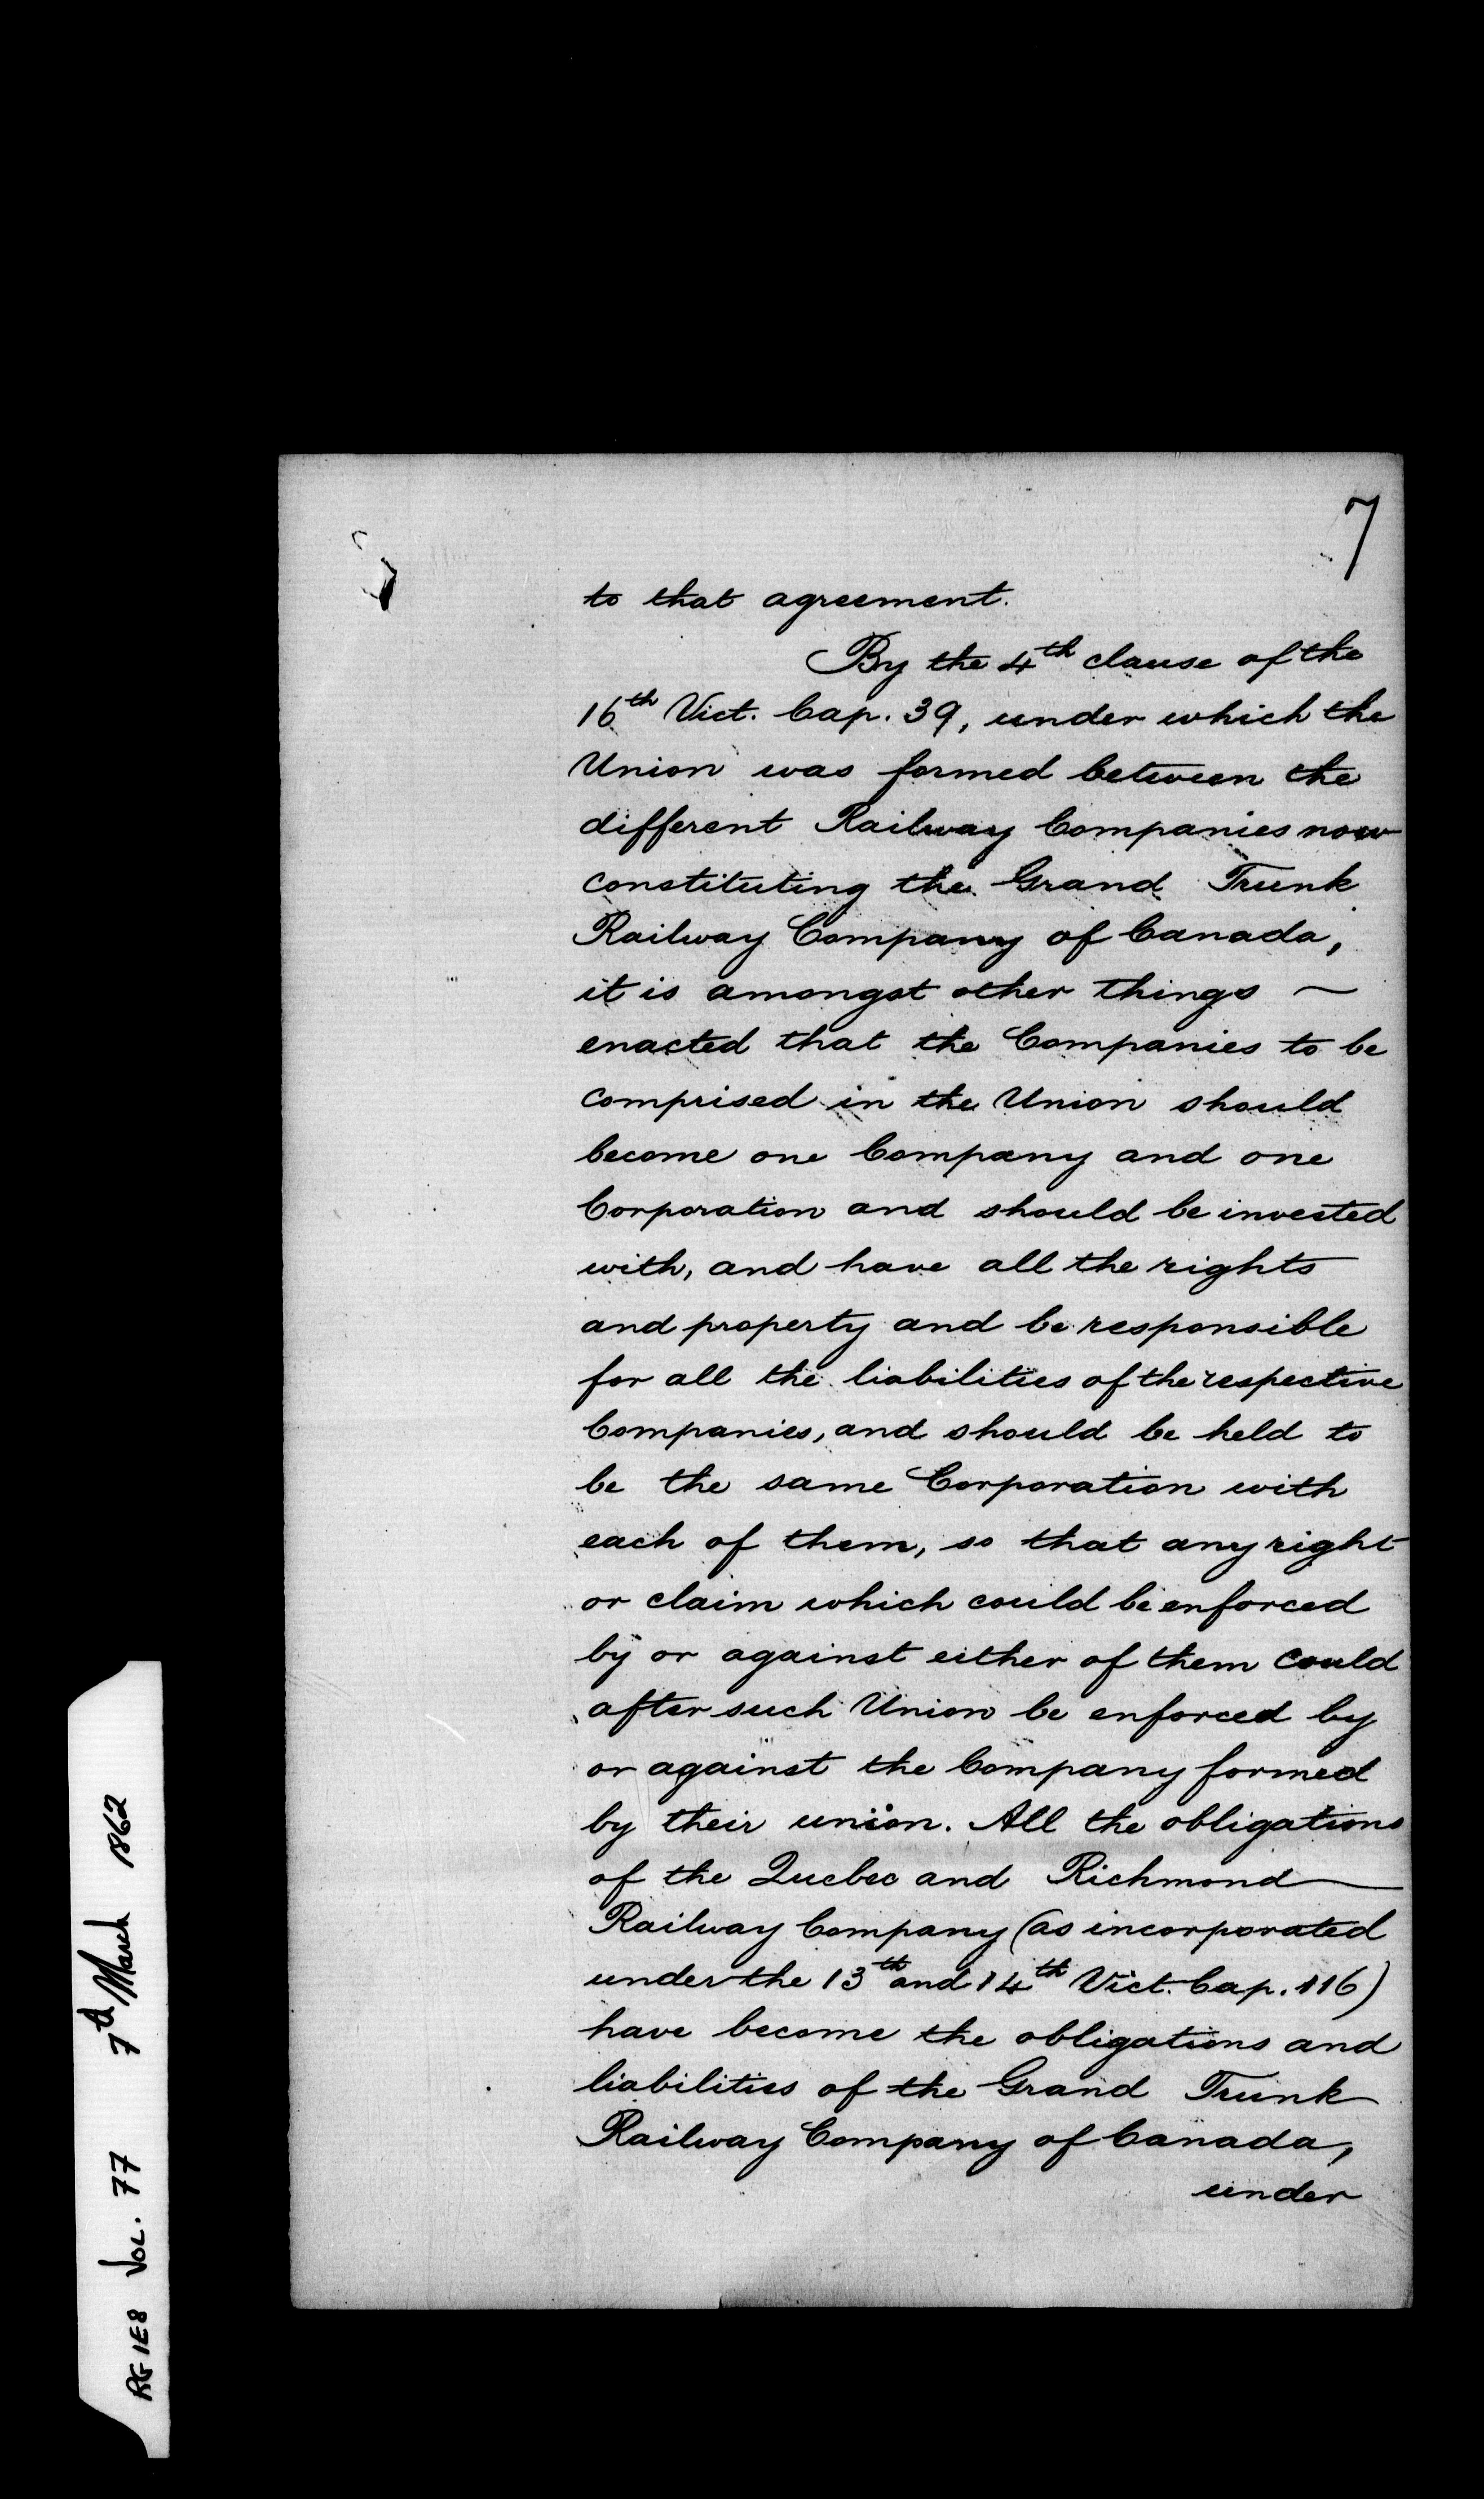 7
to that agreement.
By the 4th clause of the
16th Vict. Cap. 39, under which the
Union was formed between the
different Railway Companies now
constituting the Grand Trunk
Railway Company of Canada,
it is amongst other things ~
enacted that the Companies to be
comprised in the Union should
become one Company and one
Corporation and should be invested
with, and have all the rights
and property and be responsible
for all the liabilities of the respective
Companies, and should be held to
be the same Corporation with
each of them, so that any right
or claim which could be enforced
by or against either of them could
after such Union be enforced by
or against the Company formed
by their union. All the obligations
of the Quebec and Richmond
Railway Company (as incorporated
under the 13th and 14th Vict. Cap. 116)
have become the obligations and
liabilities of the Grand Trunk
Railway Company of Canada,
under
RG 1E8 VOL. 77 7th March 1862